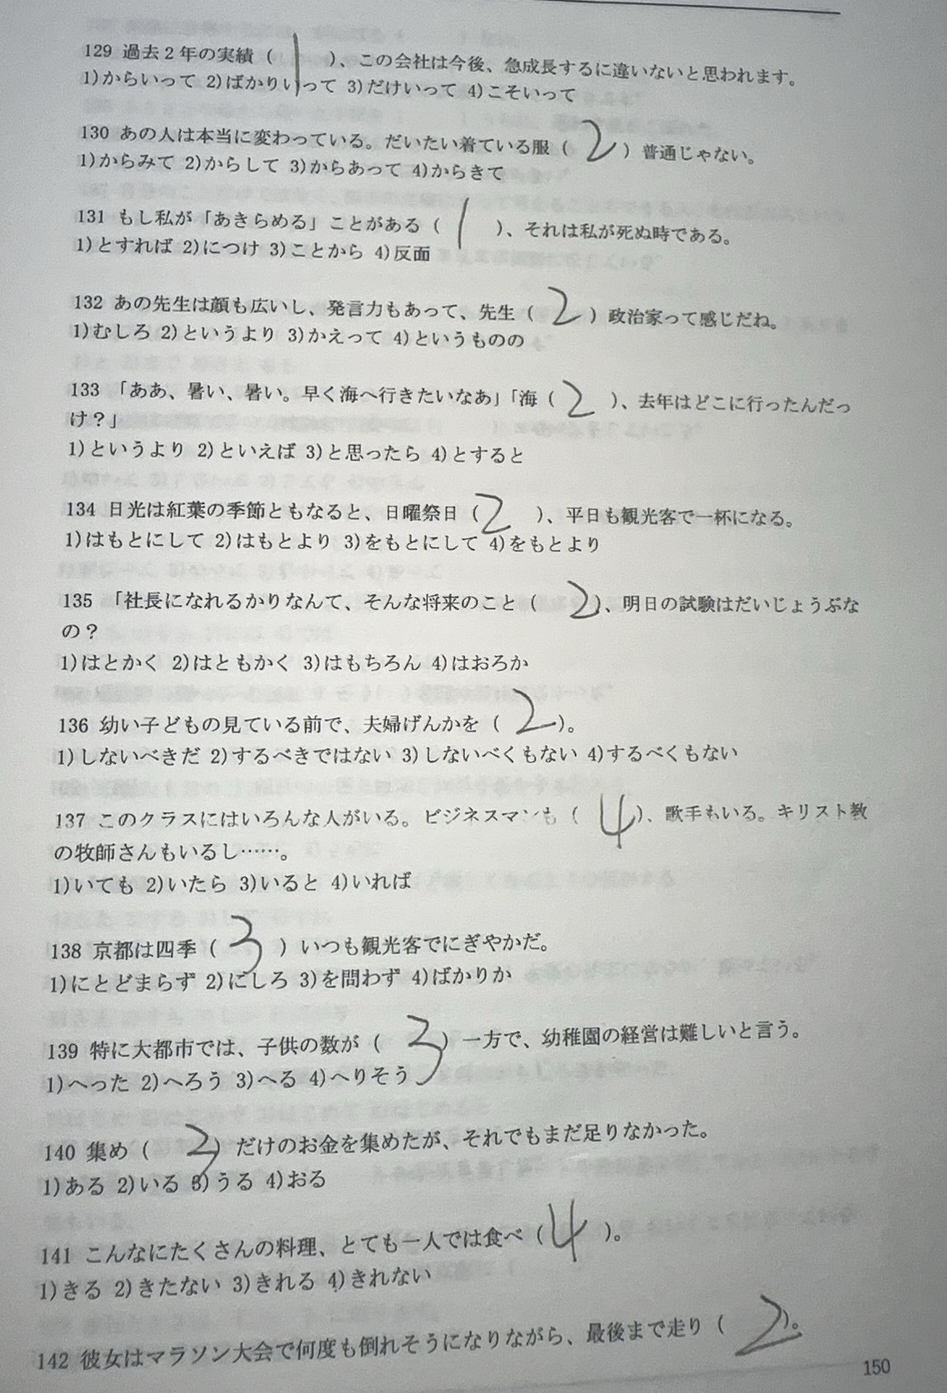 129 過去2年の実績( 1 )、この会社は今後、急成長するに違いないと思われます。
1)からいって 2)ばかりいって 3)だけいって 4)こそいって
130 あの人は本当に変わっている。だいたい着ている服( 2 )普通じゃない。
1)からみて 2)からして 3)からあって 4)からきて
131 もし私が「あきらめる」ことがある( 1 )、それは私が死ぬ時である。
1)とすれば 2)につけ 3)ことから 4)反面
132 あの先生は顔も広いし、発言力もあって、先生( 2 )政治家って感じだね。
1)むしろ 2)というより 3)かえって 4)というものの
133 「ああ、暑い、暑い。早く海へ行きたいなあ」「海( 2 )、去年はどこに行ったんだっ
け?」
1)というより 2)といえば 3)と思ったら 4)とすると
134 日光は紅葉の季節ともなると、日曜祭日( 2 )、平日も観光客で一杯になる。
1)はもとにして 2)はもとより 3)をもとにして 4)をもとより
135 「社長になれるかりなんて、そんな将来のこと( 2 )、明日の試験はだいじょうぶな
の?
1)はとかく 2)はともかく 3)はもちろん 4)はおろか
136 幼い子どもの見ている前で、夫婦げんかを( 2 )。
1)しないべきだ 2)するべきではない 3)しないべくもない 4)するべくもない
137 このクラスにはいろんな人がいる。ビジネスマンも( 4 )、歌手もいる。キリスト教
の牧師さんもいるし……。
1)いても 2)いたら 3)いると 4)いれば
138 京都は四季( 3 )いつも観光客でにぎやかだ。
1)にとどまらず 2)にしろ 3)を問わず 4)ばかりか
139 特に大都市では、子供の数が( 3 )一方で、幼稚園の経営は難しいと言う。
1)へった 2)へろう 3)へる 4)へりそう
140 集め( 3 )だけのお金を集めたが、それでもまだ足りなかった。
1)ある 2)いる 3)うる 4)おる
141 こんなにたくさんの料理、とても一人では食べ( 4 )。
1)きる 2)きたない 3)きれる 4)きれない
142 彼女はマラソン大会で何度も倒れそうになりながら、最後まで走り( 2 )。
150